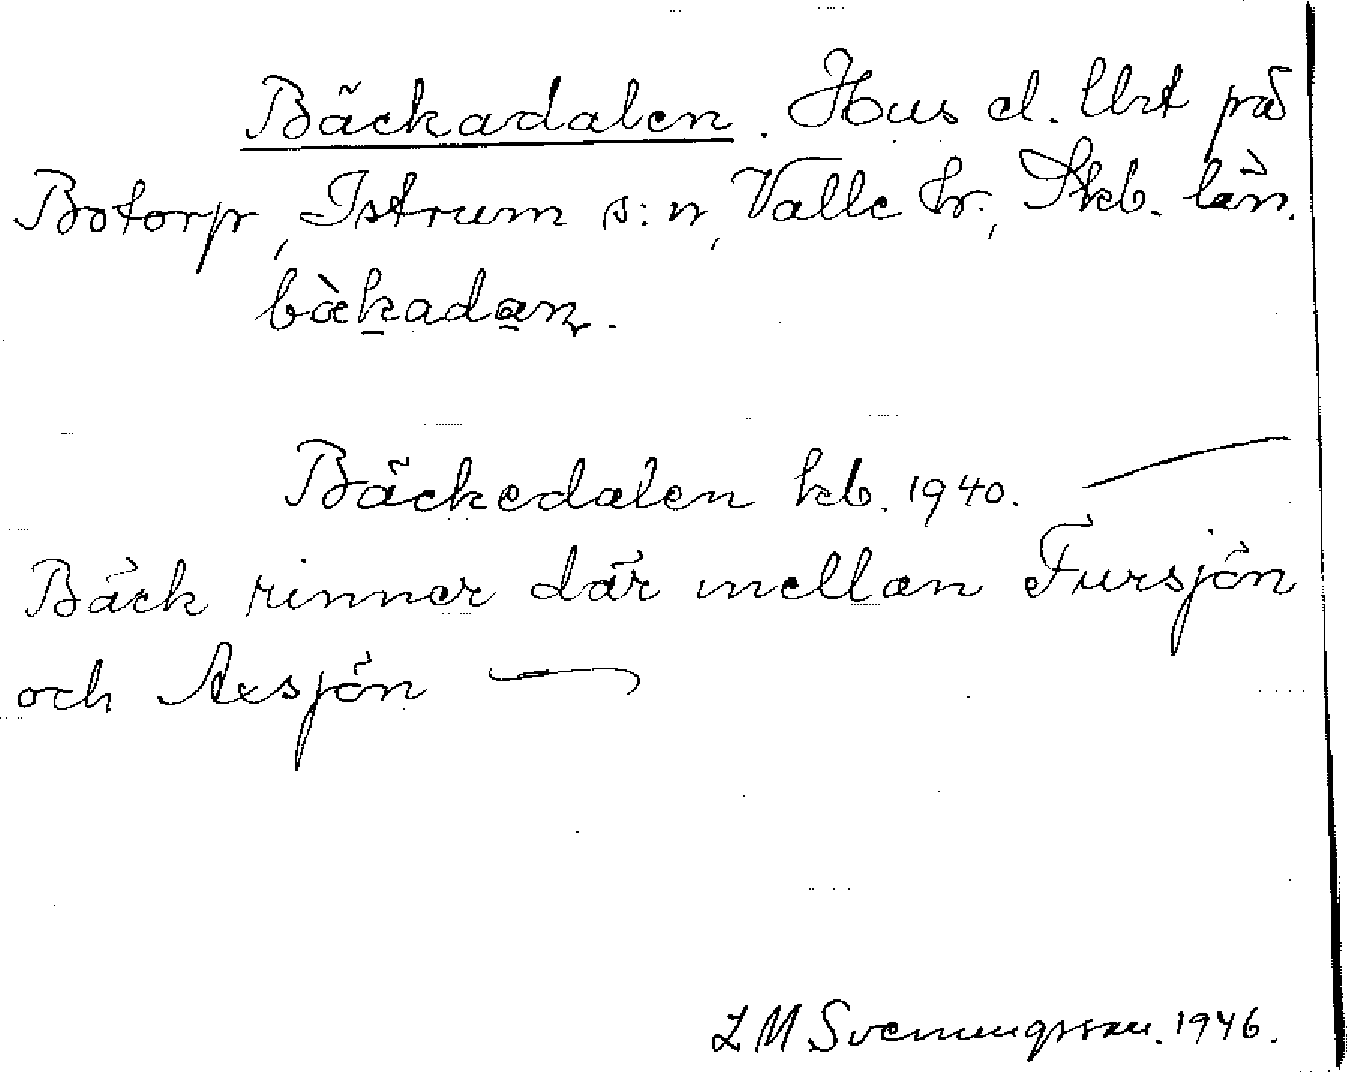 Bäckadalen. Hus el. lht på
Botorp, Istrum s:n, Valle hr., Skb. län.
bæ̀kadan.
Bäckedalen kb. 1940. —
Bäck rinner där mellan Fursjön
och Axsjön —
L M Svenungsson. 1946.